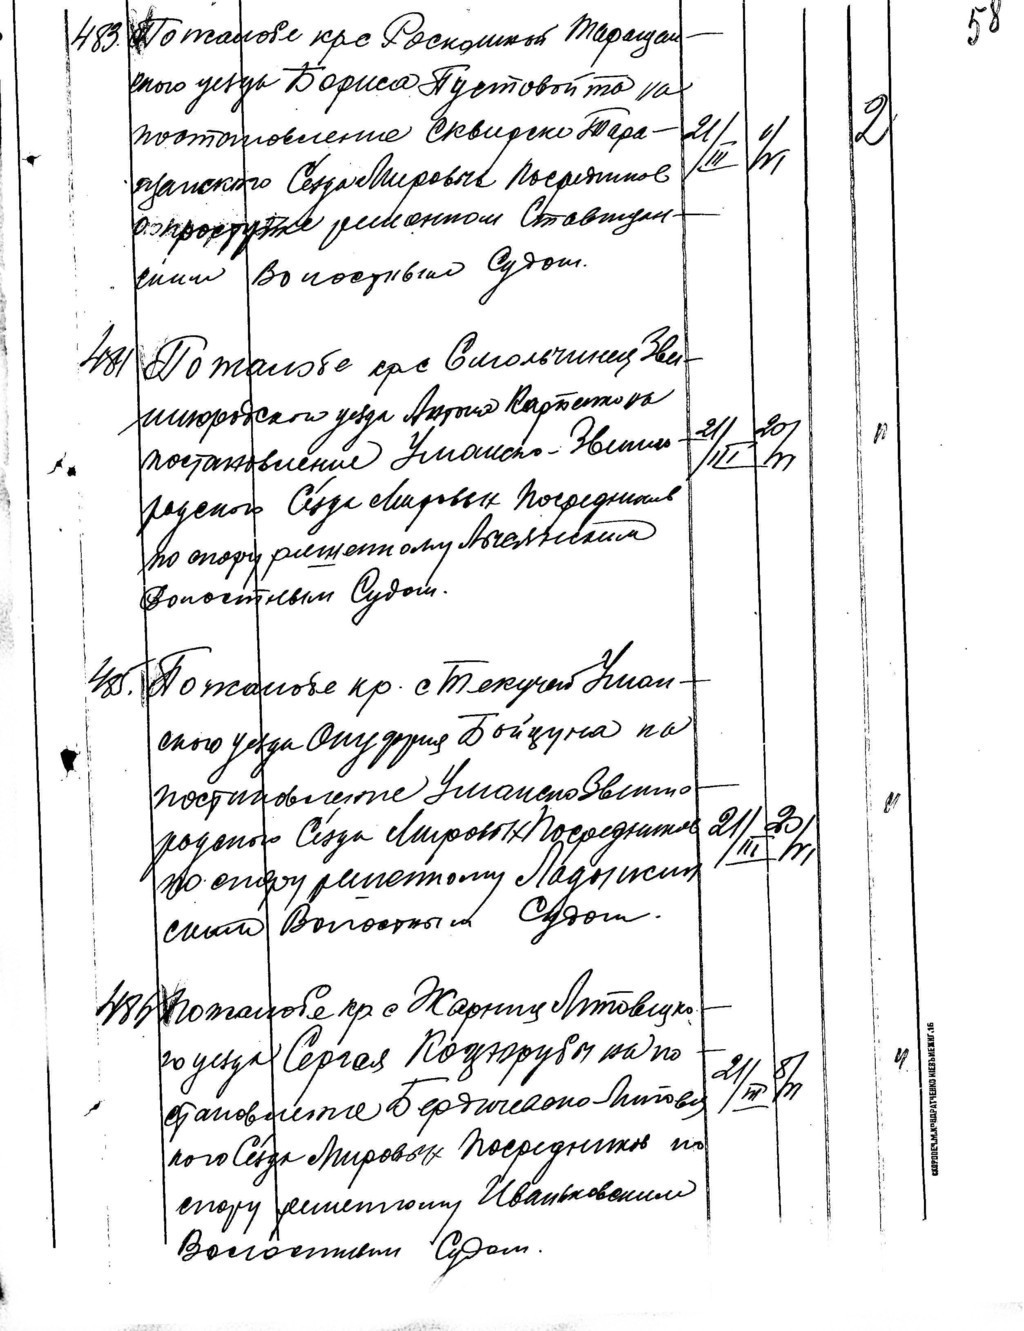 58
483. По жалобе крс Роскошной Таращан-
ского уезда Бориса Пустовойта на
постановление Сквирско Тара-
щанского Съезда Мировых Посредников
о проступке решенном Ставищан-
ским Волостным Судом.
21/III
VI
2
484 По жалобе крс Смольчинец Зве-
нигородского уезда Антона Карпенко на
постановление Уманско-Звениго-
родского Съезда Мировых Посредников
по спору решенному Лысянским
Волостным Судом.
21/III 20/VI
"
485. По жалобе кр. с Текучей Уман-
ского уезда Онуфрия Бойцуна на
постановление Уманско Звениго-
родского Съезда Мировых Посредников
по спору решенному Ладыжин
ским Волостным Судом.
21/III 20/VI
"
486 По жалобе кр с Жорнищ Липовецко-
го уезда Сергея Кодзюрубы на по-
становление Бердичевско-Липовец
кого Съезда Мировых Посредников по
спору решенному Иваньковским
Волостным Судом.
21/III 8/VI
"
СКОРОПЕЧ.М.КОНДРАТЧЕНКО КІЕВЪ МЕЖИГ.16